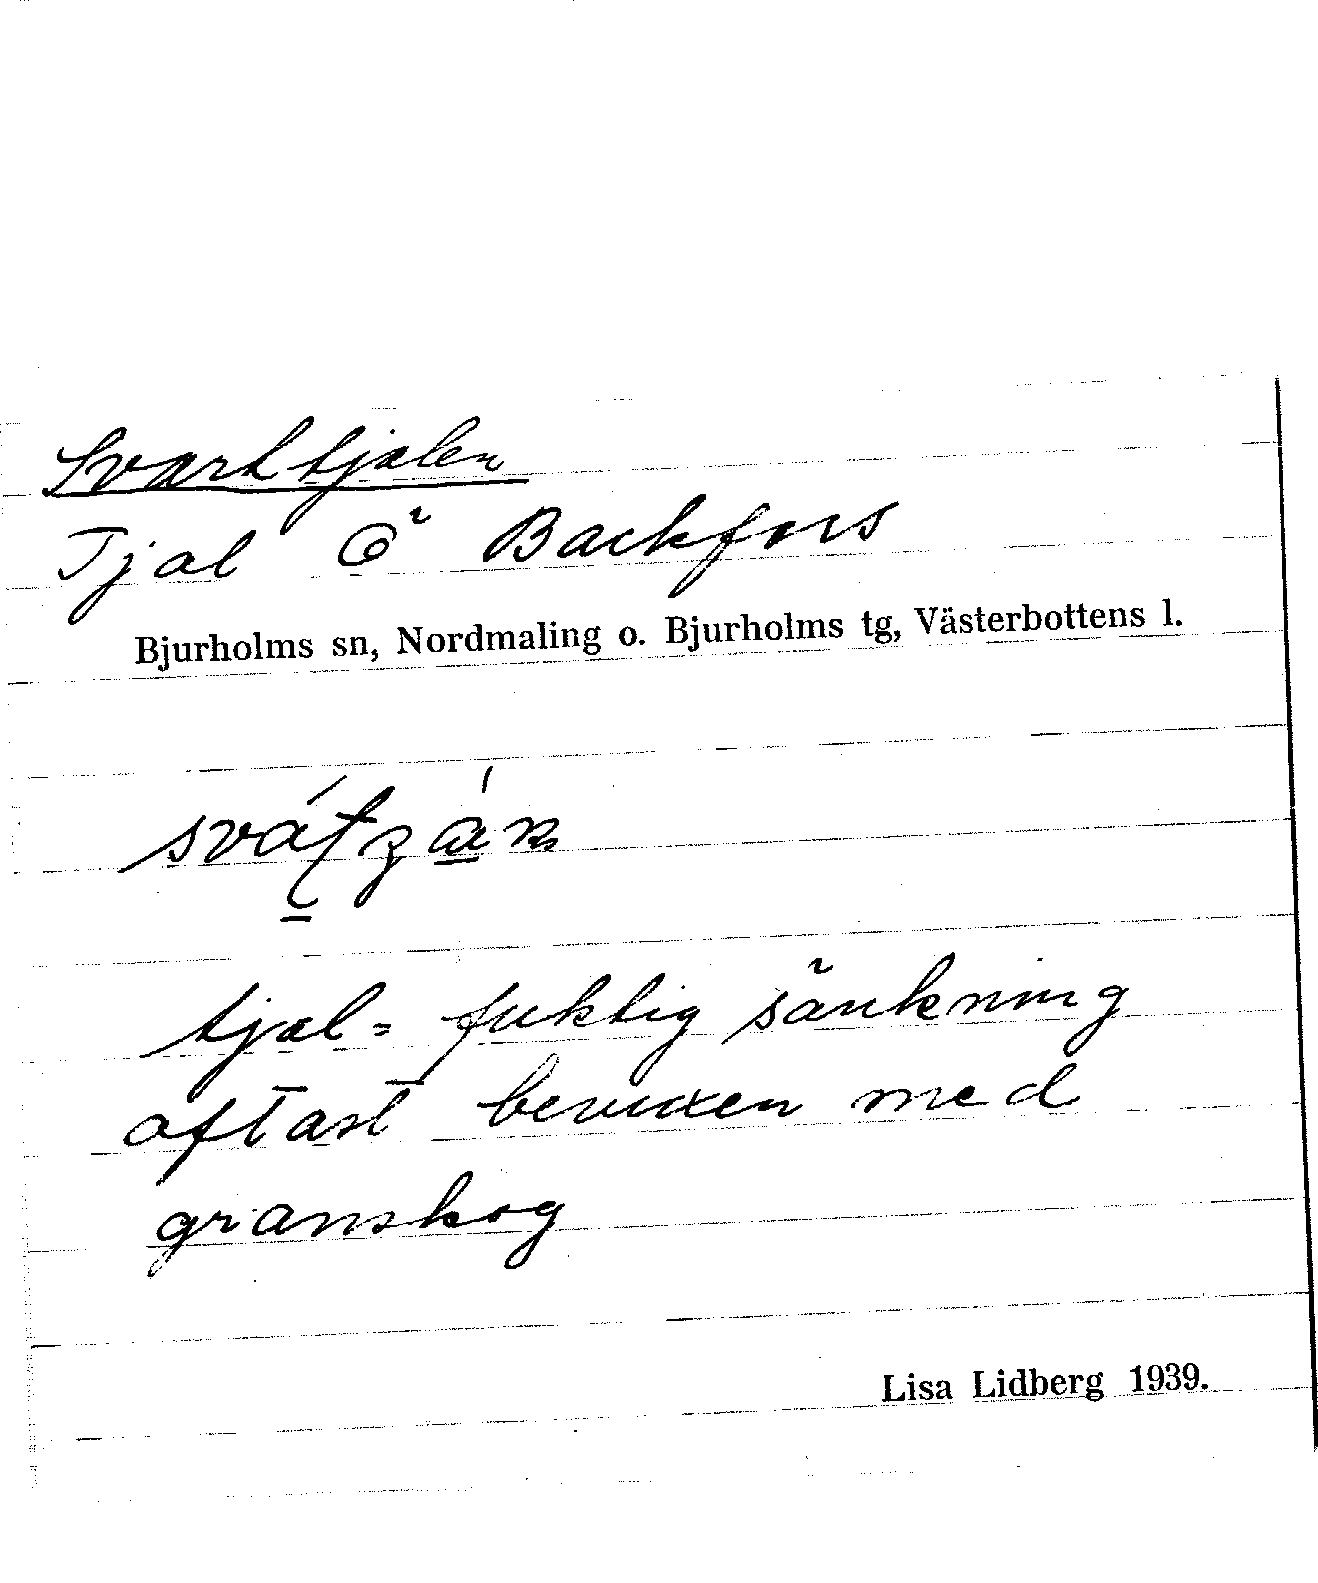 Svarttjalen
Tjal Ö Backfors
Bjurholms sn, Nordmaling o. Bjurholms tg, Västerbottens l.
tjal = fuktig sänkning
oftast bevuxen med
granskog
Lisa Lidberg 1939.